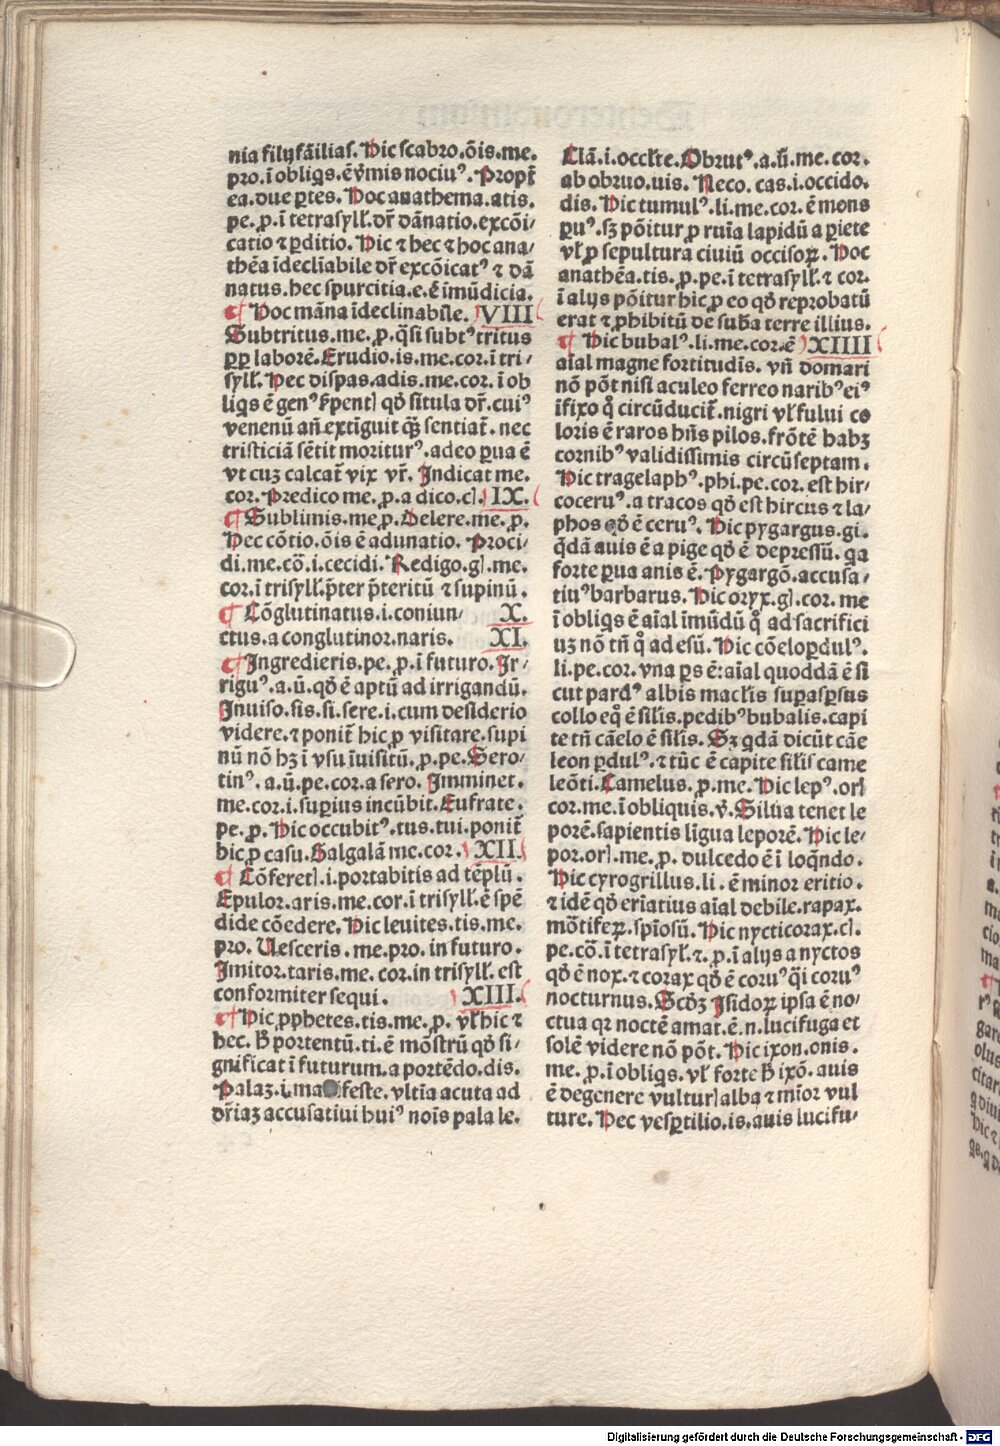 nia filij fãiliaſ. Hic ſcabro.õis.me.
pro.ĩ obliqs.ẽ v̓mis nociuꝰ. Propt̃
ea.due ꝑtes. Hoc anathema.atis.
pe.ꝓ.ĩ tetraſyll̃.dr̃ dãnatio.excõi/
catio ⁊ ꝑditio. Hic ⁊ hec ⁊ hoc ana/
thẽa ĩdeclĩabile dr̃ excõicatꝰ ⁊ dã
natus.hec ſpurcitia.e.ẽ imũdicia.
¶ Hoc mãna ĩdeclinabile. VIII
Subtritus.me.ꝓ.q̃ſi ſubtꝰtritus
ꝓꝑ laborẽ. Erudio.is.me.cor.ĩ tri/
ſyll̃. Hec diſpas.adis.me.cor.ĩ ob
liqs ẽ genꝰ ẜpent] qđ ſitula dr̃.cuiꝰ
venenũ añ extiguit q̃ꝫ ſentiat̃. nec
triſticiã ſẽtit moriturꝰ.adeo ꝑua ẽ
vt cuꝫ calcat̃ vix vr̃. Indicat me.
cor. Predico me.ꝓ.a dico.c]. IX.
¶ Sublimis.me ꝓ. Delere.me.ꝓ.
Hec cõtio.õis ẽ adunatio. Proci/
di.me.cõ.i.cecidi. Redigo.g].me.
cor.ĩ triſyll̃.p̃ter p̃teritũ ⁊ ſupinũ.
¶ Cõglutinatus.i.coniun/ X.
ctus.a conglutinor.naris. XI.
¶ Ingredieris.pe.ꝓ.ĩ futuro. Ir/
riguꝰ.a.ũ.qđ ẽ aptũ ad irrigandũ.
Inuiſo.ſis.ſi.ſere.i.cum deſiderio
videre.⁊ ponit̃ hic ꝓ viſitare.ſupi
nũ nõ hꝫ ĩ vſu ĩuiſitũ.ꝓ.pe. Sero/
tinꝰ.a.ũ.pe.cor.a ſero. Imminet.
me.cor.i.ſuꝑius incũbit. Eufrate.
pe.ꝓ. Hic occubitꝰ.tus.tui.ponit̃
hic ꝓ caſu. Galgalã me.cor. XII.
¶ Cõferet].i.portabitis ad tẽplũ.
Epulor.aris.me.cor.ĩ triſyll̃.ẽ ſpẽ
dide cõedere. Hic leuites.tis.me.
pro. Ueſceris.me.pro.in futuro.
Imitor.taris.me.cor.in triſyll̃.eſt
conformiter ſequi. XIII.
¶ Hic ꝓphetes.tis.me.ꝓ. vl̃ hic ⁊
hec. H̃ portentũ.ti.ẽ mõſtrũ qđ ſi/
gnificat ĩ futurum.a portẽdo.dis.
Palaꝫ.i.ma feſte. vltĩa acuta ad
dr̃iaꝫ accuſatiui huiꝰ noĩs pala le.
Clã.i.occl̃te. Obrutꝰ.a.ũ.me.cor.
ab obruo.uis. Neco.cas.i.occido.
dis. Hic tumulꝰ.li.me.cor.ẽ mons
ꝑuꝰ.ſꝫ põitur ꝓ ruĩa lapidũ a ꝑiete
vl̃ ꝓ ſepultura ciuiũ occiſoꝝ. Hoc
anathẽa.tis.ꝓ.pe.ĩ tetraſyll̃.⁊ cor.
ĩ alijs põitur hic ꝓ eo qđ reprobatũ
erat ⁊ ꝓhibitũ de ſub̃a terre illius.
¶ Hic bubalꝰ.li.me.cor.ẽ XIIII
aĩal magne fortitudĩs. vñ domari
nõ põt niſi aculeo ferreo naribꝰ eiꝰ
ĩfixo q̊ circũducit̃.nigri vl̃ fului co
loris ẽ raros hñs pilos.frõtẽ habꝫ
cornibꝰ validiſſimis circũſeptam.
Hic tragelaphꝰ.phi.pe.cor. eſt hir/
coceruꝰ.a tracos qđ eſt hircus ⁊ la/
phos qđ ẽ ceruꝰ. Hic pygargus.gi.
q̃dã auis ẽ a pige qđ ẽ depreſſũ.qa
forte ꝑua anis ẽ. Pygargõ.accuſa/
tiuꝰ barbarus. Hic oryx.g].cor. me
ĩ obliqs ẽ aĩal ĩmũdũ q̊ ad ſacrifici
uꝫ nõ tñ q̊ ad eſũ. Hic cõeloꝑdulꝰ.
li.pe.cor. vna ꝑs ẽ: aĩal quoddã ẽ ſi
cut pardꝰ albis macl̃is ſuꝑaſꝑſus
collo eq̊ ẽ ſil̃is.pedibꝰ bubalis.capi
te tñ cãelo ẽ ſil̃is. Sꝫ qdã dicũt cãe
leon ꝑdulꝰ.⁊ tũc ẽ capite ſil̃is came
leõti. Camelus.ꝓ.me. Hic lepꝰ.or]
cor.me.ĩ obliquis.v̓. Silua tenet le
porẽ.ſapientis lĩgua leporẽ. Hic le/
por.or].me.ꝓ. dulcedo ẽ ĩ loq̃ndo.
Hic cyrogrillus.li.ẽ minor eritio.
⁊ idẽ qđ eriatius aĩal debile.rapax.
mõtifeꝝ.ſpĩoſũ. Hic nycticorax.c].
pe.cõ.ĩ tetraſyl̃.⁊.ꝓ.ĩ alijs a nyctos
qđ ẽ nox.⁊ corax qđ ẽ coruꝰ q̃i coruꝰ
nocturnus. Scđꝫ Iſidoꝝ ipſa ẽ no/
ctua qꝛ noctẽ amat.ẽ.n.lucifuga et
ſolẽ videre nõ põt. Hic ixon.onis.
me.ꝓ.ĩ obliqs. vl̃ forte h̃ ixõ. auis
ẽ degenere vultur] alba ⁊ mĩor vul
ture. Hec veſꝑtilio.is.auis lucifu/
Digitalisierung gefördert durch die Deutsche Forschungsgemeinschaft - DFG